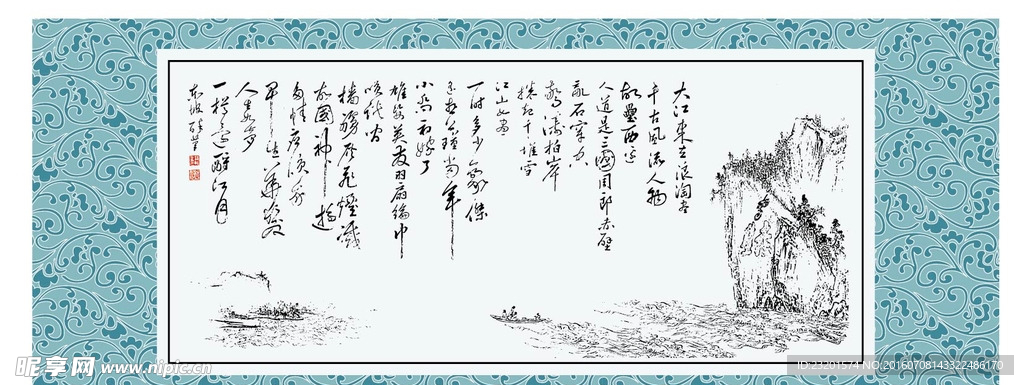 大江东去浪淘尽
千古风流人物
故垒西边
人道是三国周郎赤壁
乱石穿空
惊涛拍岸
捲起千堆雪
江山如画
一时多少豪傑
遥想公瑾当年
小乔初嫁了
雄姿英发羽扇纶巾
谈笑间
樯橹灰飞烟灭
故國神游
多情应笑我
早生华发
人生如梦
一樽还酹江月
东坡
昵享网 www.nipic.cn
ID:23201574 NO:20160708143322486170